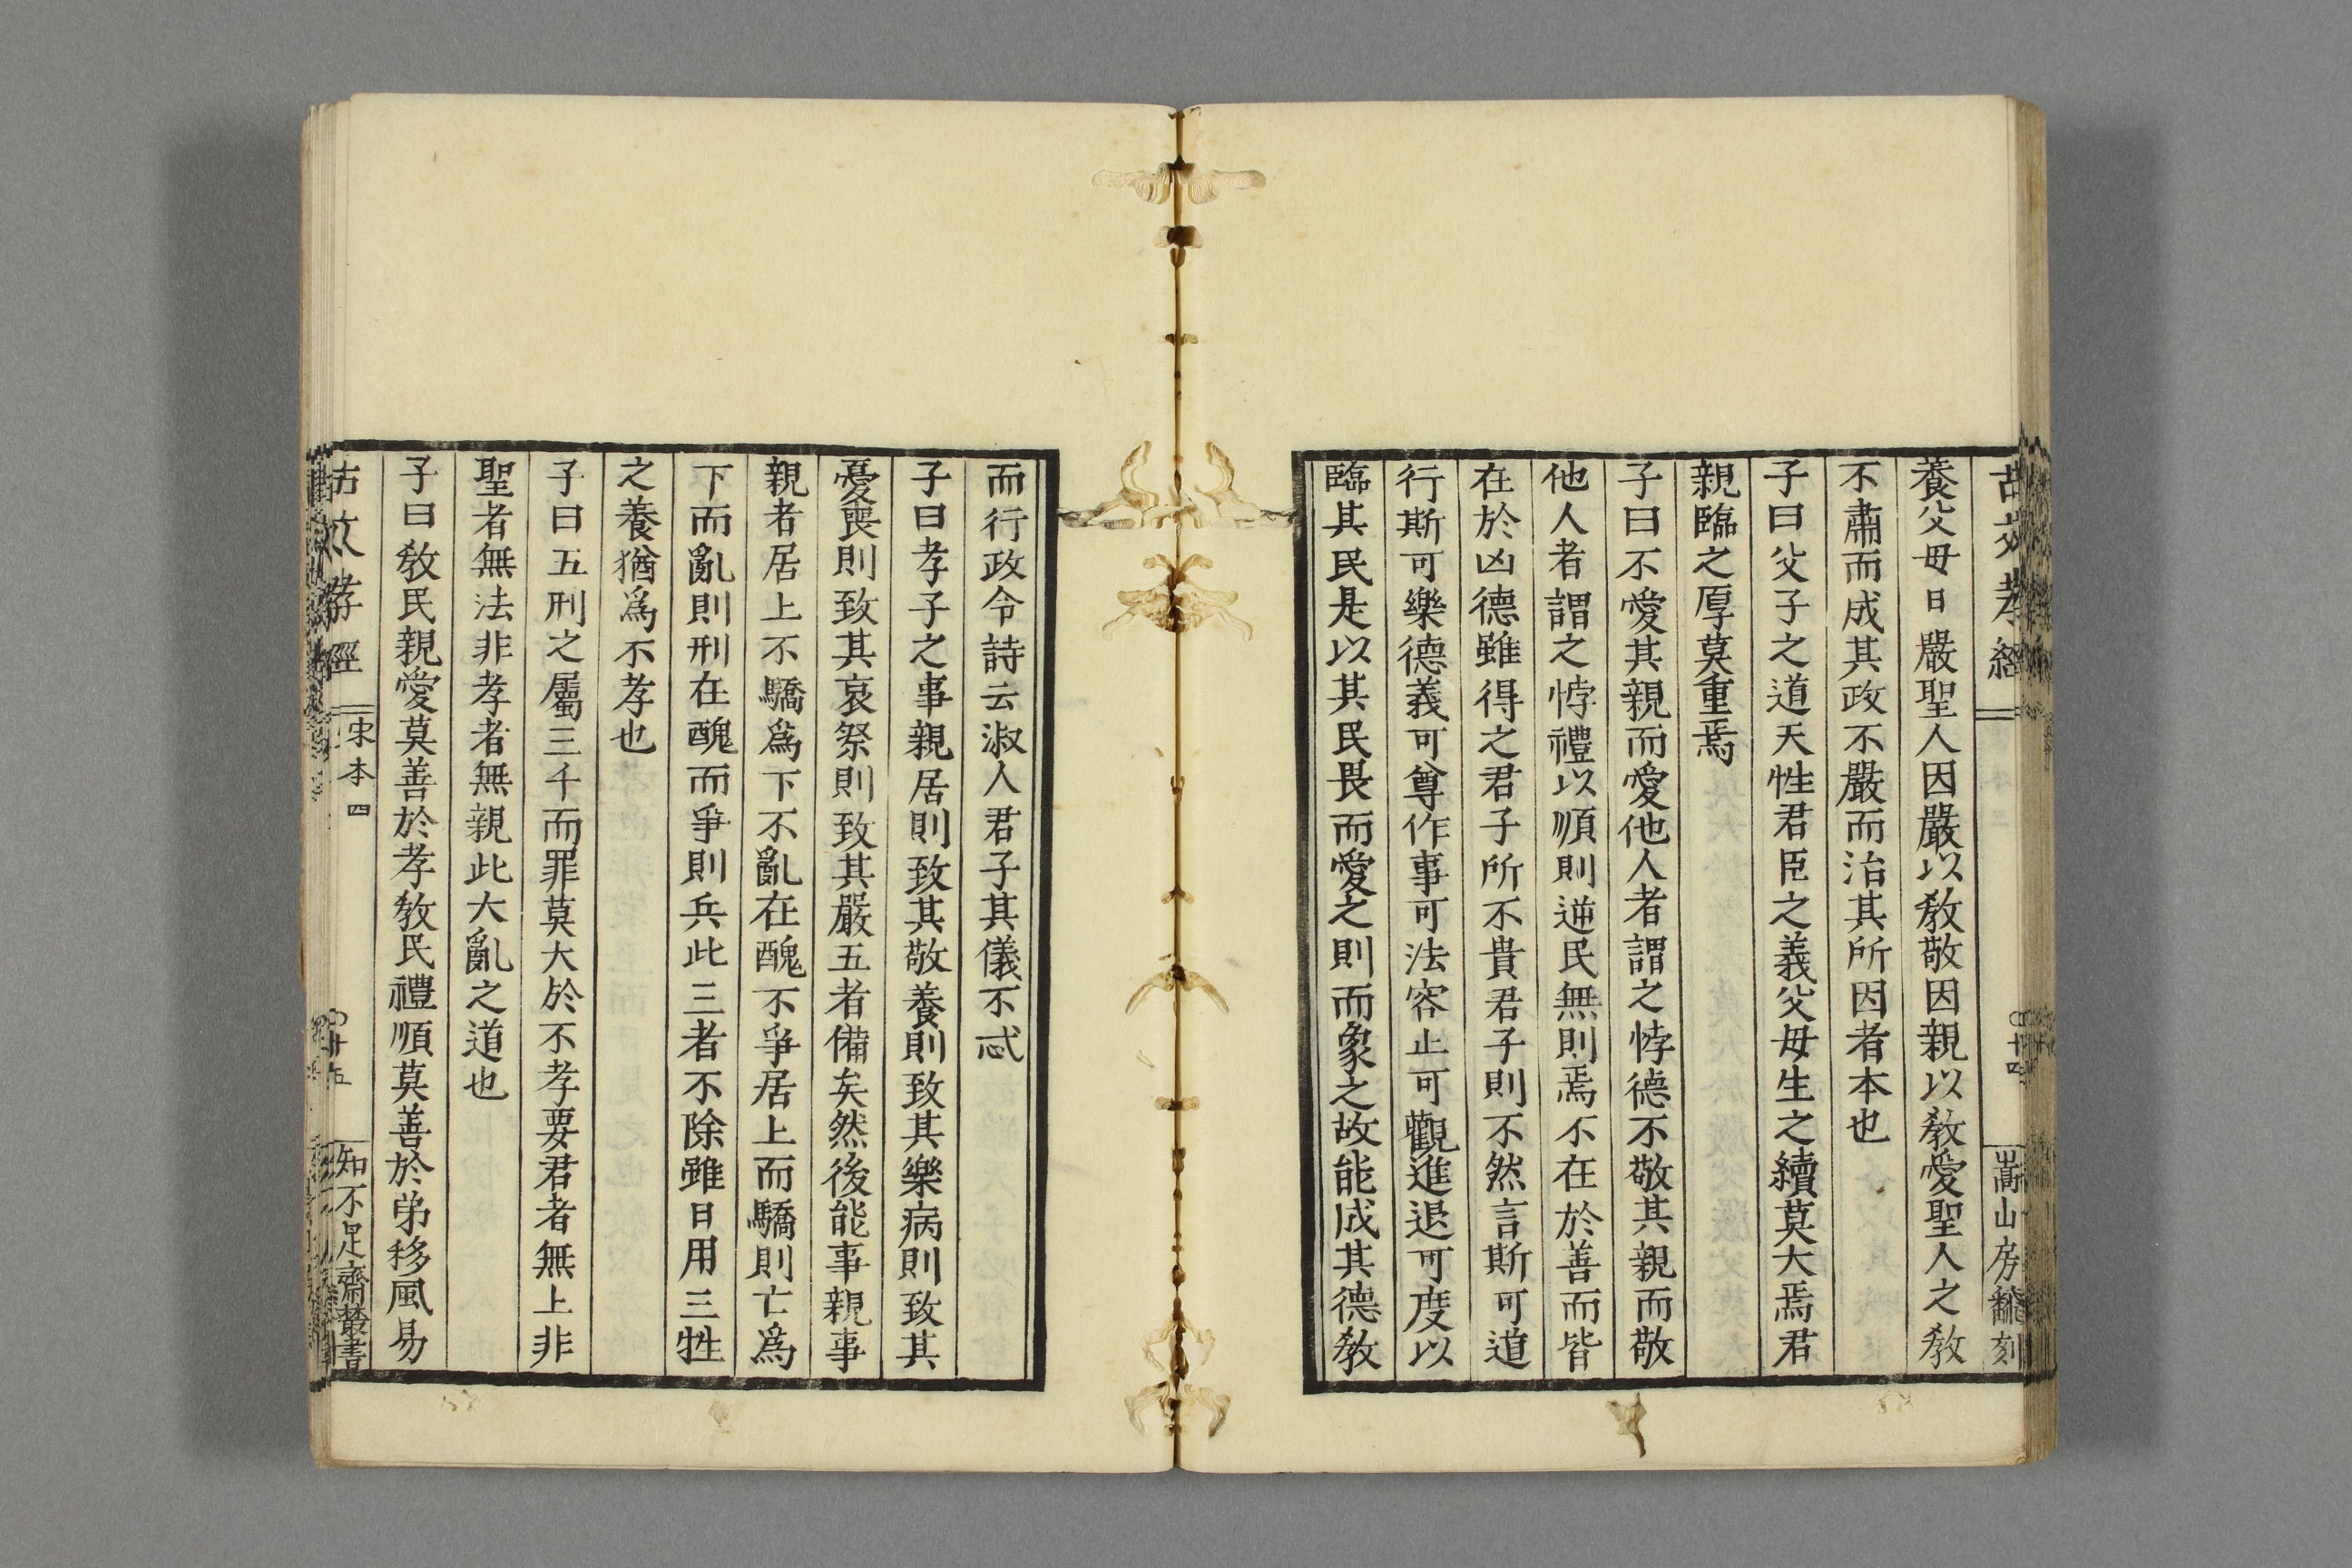 古文孝經
〇十四
嵩山房翻刻
養父母日嚴聖人因嚴以敎敬因親以敎愛聖人之敎
不肅而成其政不嚴而治其所因者本也
子曰父子之道天性君臣之義父母生之續莫大焉君
親臨之厚莫重焉
子曰不愛其親而愛他人者謂之悖德不敬其親而敬
他人者謂之悖禮以順則逆民無則焉不在於善而皆
在於凶德雖得之君子所不貴君子則不然言斯可道
行斯可樂德義可尊作事可法容止可觀進退可度以
臨其民是以其民畏而愛之則而象之故能成其德敎
而行政令詩云淑人君子其儀不忒
子曰孝子之事親居則致其敬養則致其樂病則致其
憂喪則致其哀祭則致其嚴五者備矣然後能事親事
親者居上不驕爲下不亂在醜不爭居上而驕則亡爲
下而亂則刑在醜而爭則兵此三者不除雖日用三牲
之養猶爲不孝也
子曰五刑之屬三千而罪莫大於不孝要君者無上非
聖者無法非孝者無親此大亂之道也
子曰敎民親愛莫善於孝敎民禮順莫善於弟移風易
古文孝經
宋本 四
〇十五
知不足齋叢書